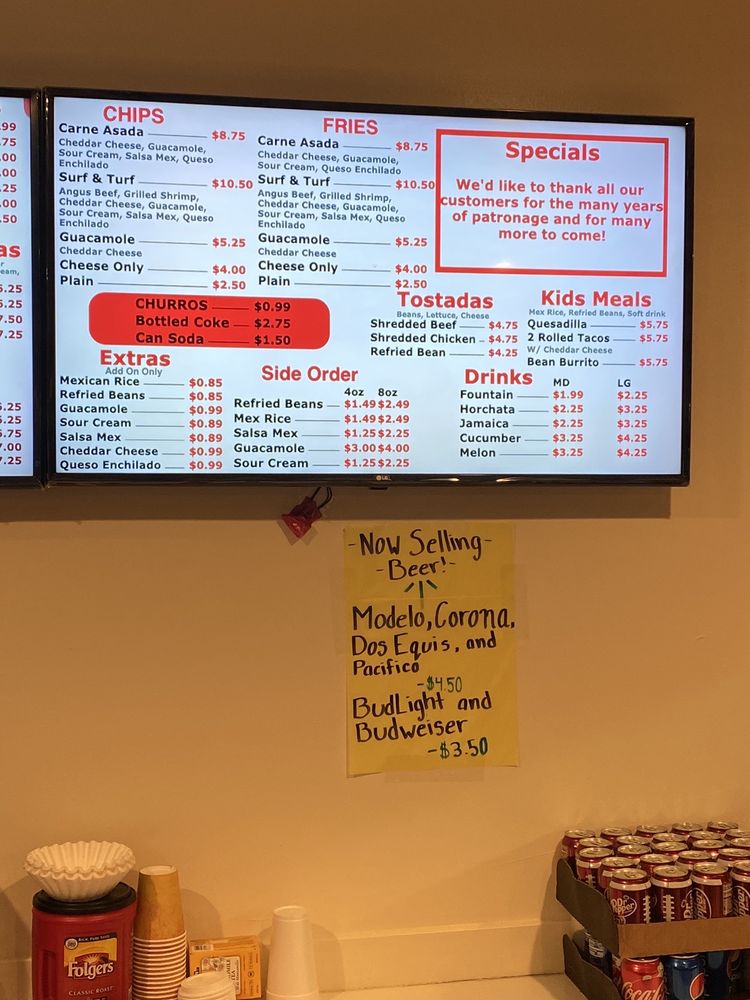 .99
.75
.00
.00
.25
.00
.50
as
eam,
5.25
5.25
7.50
7.25
5.25
5.25
5.75
7.00
7.25
CHIPS
Carne Asada $8.75
Cheddar Cheese, Guacamole,
Sour Cream, Salsa Mex, Queso
Enchilado
Surf & Turf $10.50
Angus Beef, Grilled Shrimp,
Cheddar Cheese, Guacamole,
Sour Cream, Salsa Mex, Queso
Enchilado
Guacamole $5.25
Cheddar Cheese
Cheese Only $4.00
Plain $2.50
FRIES
Carne Asada $8.75
Cheddar Cheese, Guacamole,
Sour Cream, Queso Enchilado
Surf & Turf $10.50
Angus Beef, Grilled Shrimp,
Cheddar Cheese, Guacamole,
Sour Cream, Salsa Mex, Queso
Enchilado
Guacamole $5.25
Cheddar Cheese
Cheese Only $4.00
Plain $2.50
Specials
We'd like to thank all our
customers for the many years
of patronage and for many
more to come!
CHURROS $0.99
Bottled Coke $2.75
Can Soda $1.50
Tostadas
Beans, Lettuce, Cheese
Shredded Beef $4.75
Shredded Chicken $4.75
Refried Bean $4.25
Kids Meals
Mex Rice, Refried Beans, Soft drink
Quesadilla $5.75
2 Rolled Tacos $5.75
W/ Cheddar Cheese
Bean Burrito $5.75
Extras
Add On Only
Mexican Rice $0.85
Refried Beans $0.85
Guacamole $0.99
Sour Cream $0.89
Salsa Mex $0.89
Cheddar Cheese $0.99
Queso Enchilado $0.99
Side Order
4oz 8oz
Refried Beans $1.49 $2.49
Mex Rice $1.49 $2.49
Salsa Mex $1.25 $2.25
Guacamole $3.00 $4.00
Sour Cream $1.25 $2.25
Drinks MD LG
Fountain $1.99 $2.25
Horchata $2.25 $3.25
Jamaica $2.25 $3.25
Cucumber $3.25 $4.25
Melon $3.25 $4.25
LG
-Now Selling-
-Beer!-
Modelo, Corona,
Dos Equis, and
Pacifico
-$4.50
BudLight and
Budweiser
-$3.50
Folgers
CLASSIC ROAST
Dr Pepper
Coca
pepsi